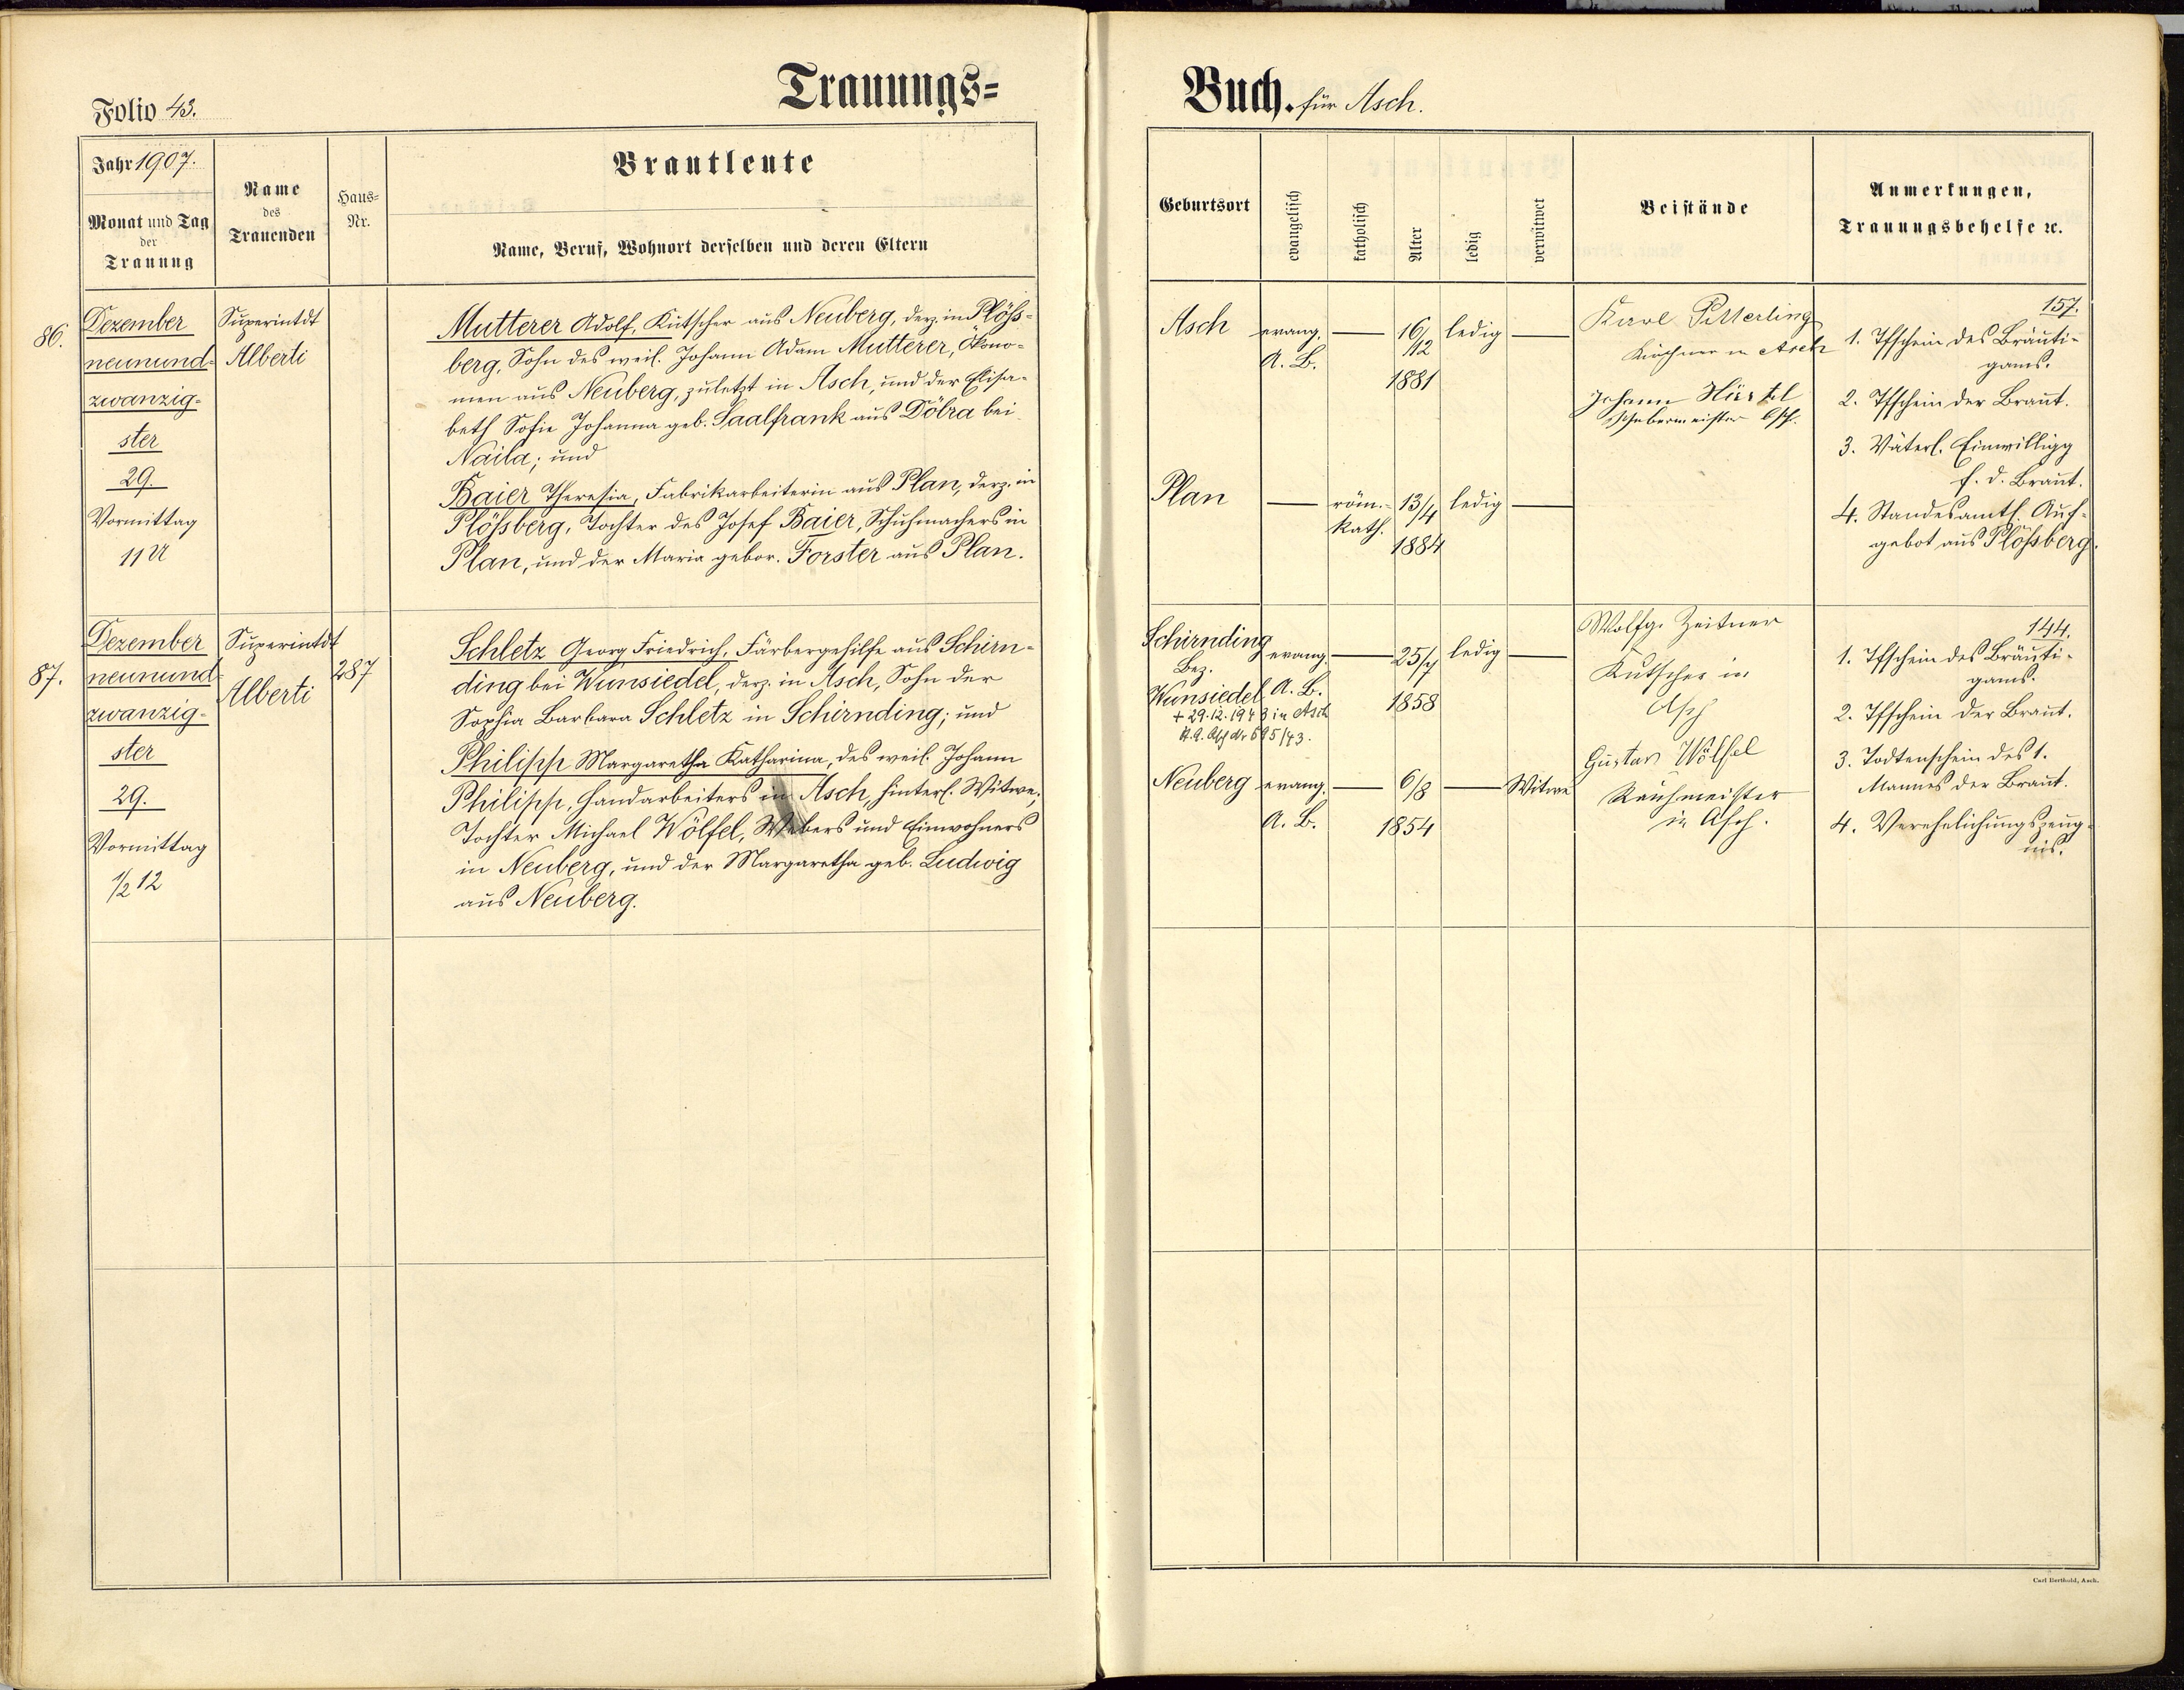 Folio 43.
Trauungs=
Jahr 1907.
Monat und Tag
der
Trauung
Name
des
Trauenden
Haus=
Nr.
Brautleute
Name, Beruf, Wohnort derselben und deren Eltern
86.
Dezember
neunund-
zwanzig-
ster
29.
Vormittag
11 U
Superintdt
Alberti
Mutterer Adolf, Kutscher aus Neuberg, derz. in Plöss-
berg, Sohn des weil. Johann Adam Mutterer, Ökono-
men aus Neuberg, zuletzt in Asch, und der Elisa-
beth Sofie Johanna geb. Saalfrank aus Döbra bei
Naila; und
Baier Theresia, Fabrikarbeiterin aus Plan, derz. in
Plössberg, Tochter des Josef Baier, Schuhmachers in
Plan, und der Maria gebor. Forster aus Plan.
87.
Dezember
neunund-
zwanzig-
ster
29.
Vormittag
1/2 12
Superintdt
Alberti
287
Schletz Georg Friedrich, Färbergehilfe aus Schirn-
ding bei Wunsiedel, derz. in Asch, Sohn der
Sophia Barbara Schletz in Schirnding; und
Philipp Margaretha Katharina, des weil. Johann
Philipp, Handarbeiters in Asch, hinterl. Witwe,
Tochter Michael Wölfel, Webers und Einwohners
in Neuberg, und der Margaretha geb. Ludwig
aus Neuberg.
Buch. für Asch.
Geburtsort
evangelisch
katholisch
Alter
ledig
verwitwet
Beistände
Anmerkungen,
Trauungsbehelfe ꝛc.
Asch
evang.
A. B.
16/12
1881
ledig
Karl
in Asch
Johann Hürtel
Asch.
157.
1. Tfschein des Bräuti-
gams.
2. Tfschein der Braut.
3. Väterl. Einwilligg
f. d. Braut.
4. Standesamtl. Auf-
gebot aus Plössberg.
Plan
röm.-
kath.
13/4
1884
ledig
Schirnding
Bez.
Wunsiedel
+ 29.12.1943 in Asch
evang.
A. B.
25/7
1858
ledig
Wolfg. Zeitner
Kutscher in
Asch
Gustav Wölfel
Rauhmeister
in Asch.
144.
1. Tfschein des Bräuti-
gams.
2. Tfschein der Braut.
3. Todtenschein des 1.
Mannes der Braut.
4. Verehelichungszeug-
nis.
Neuberg
evang.
A. B.
6/8
1854
Witwe
Carl Berthold, Asch.